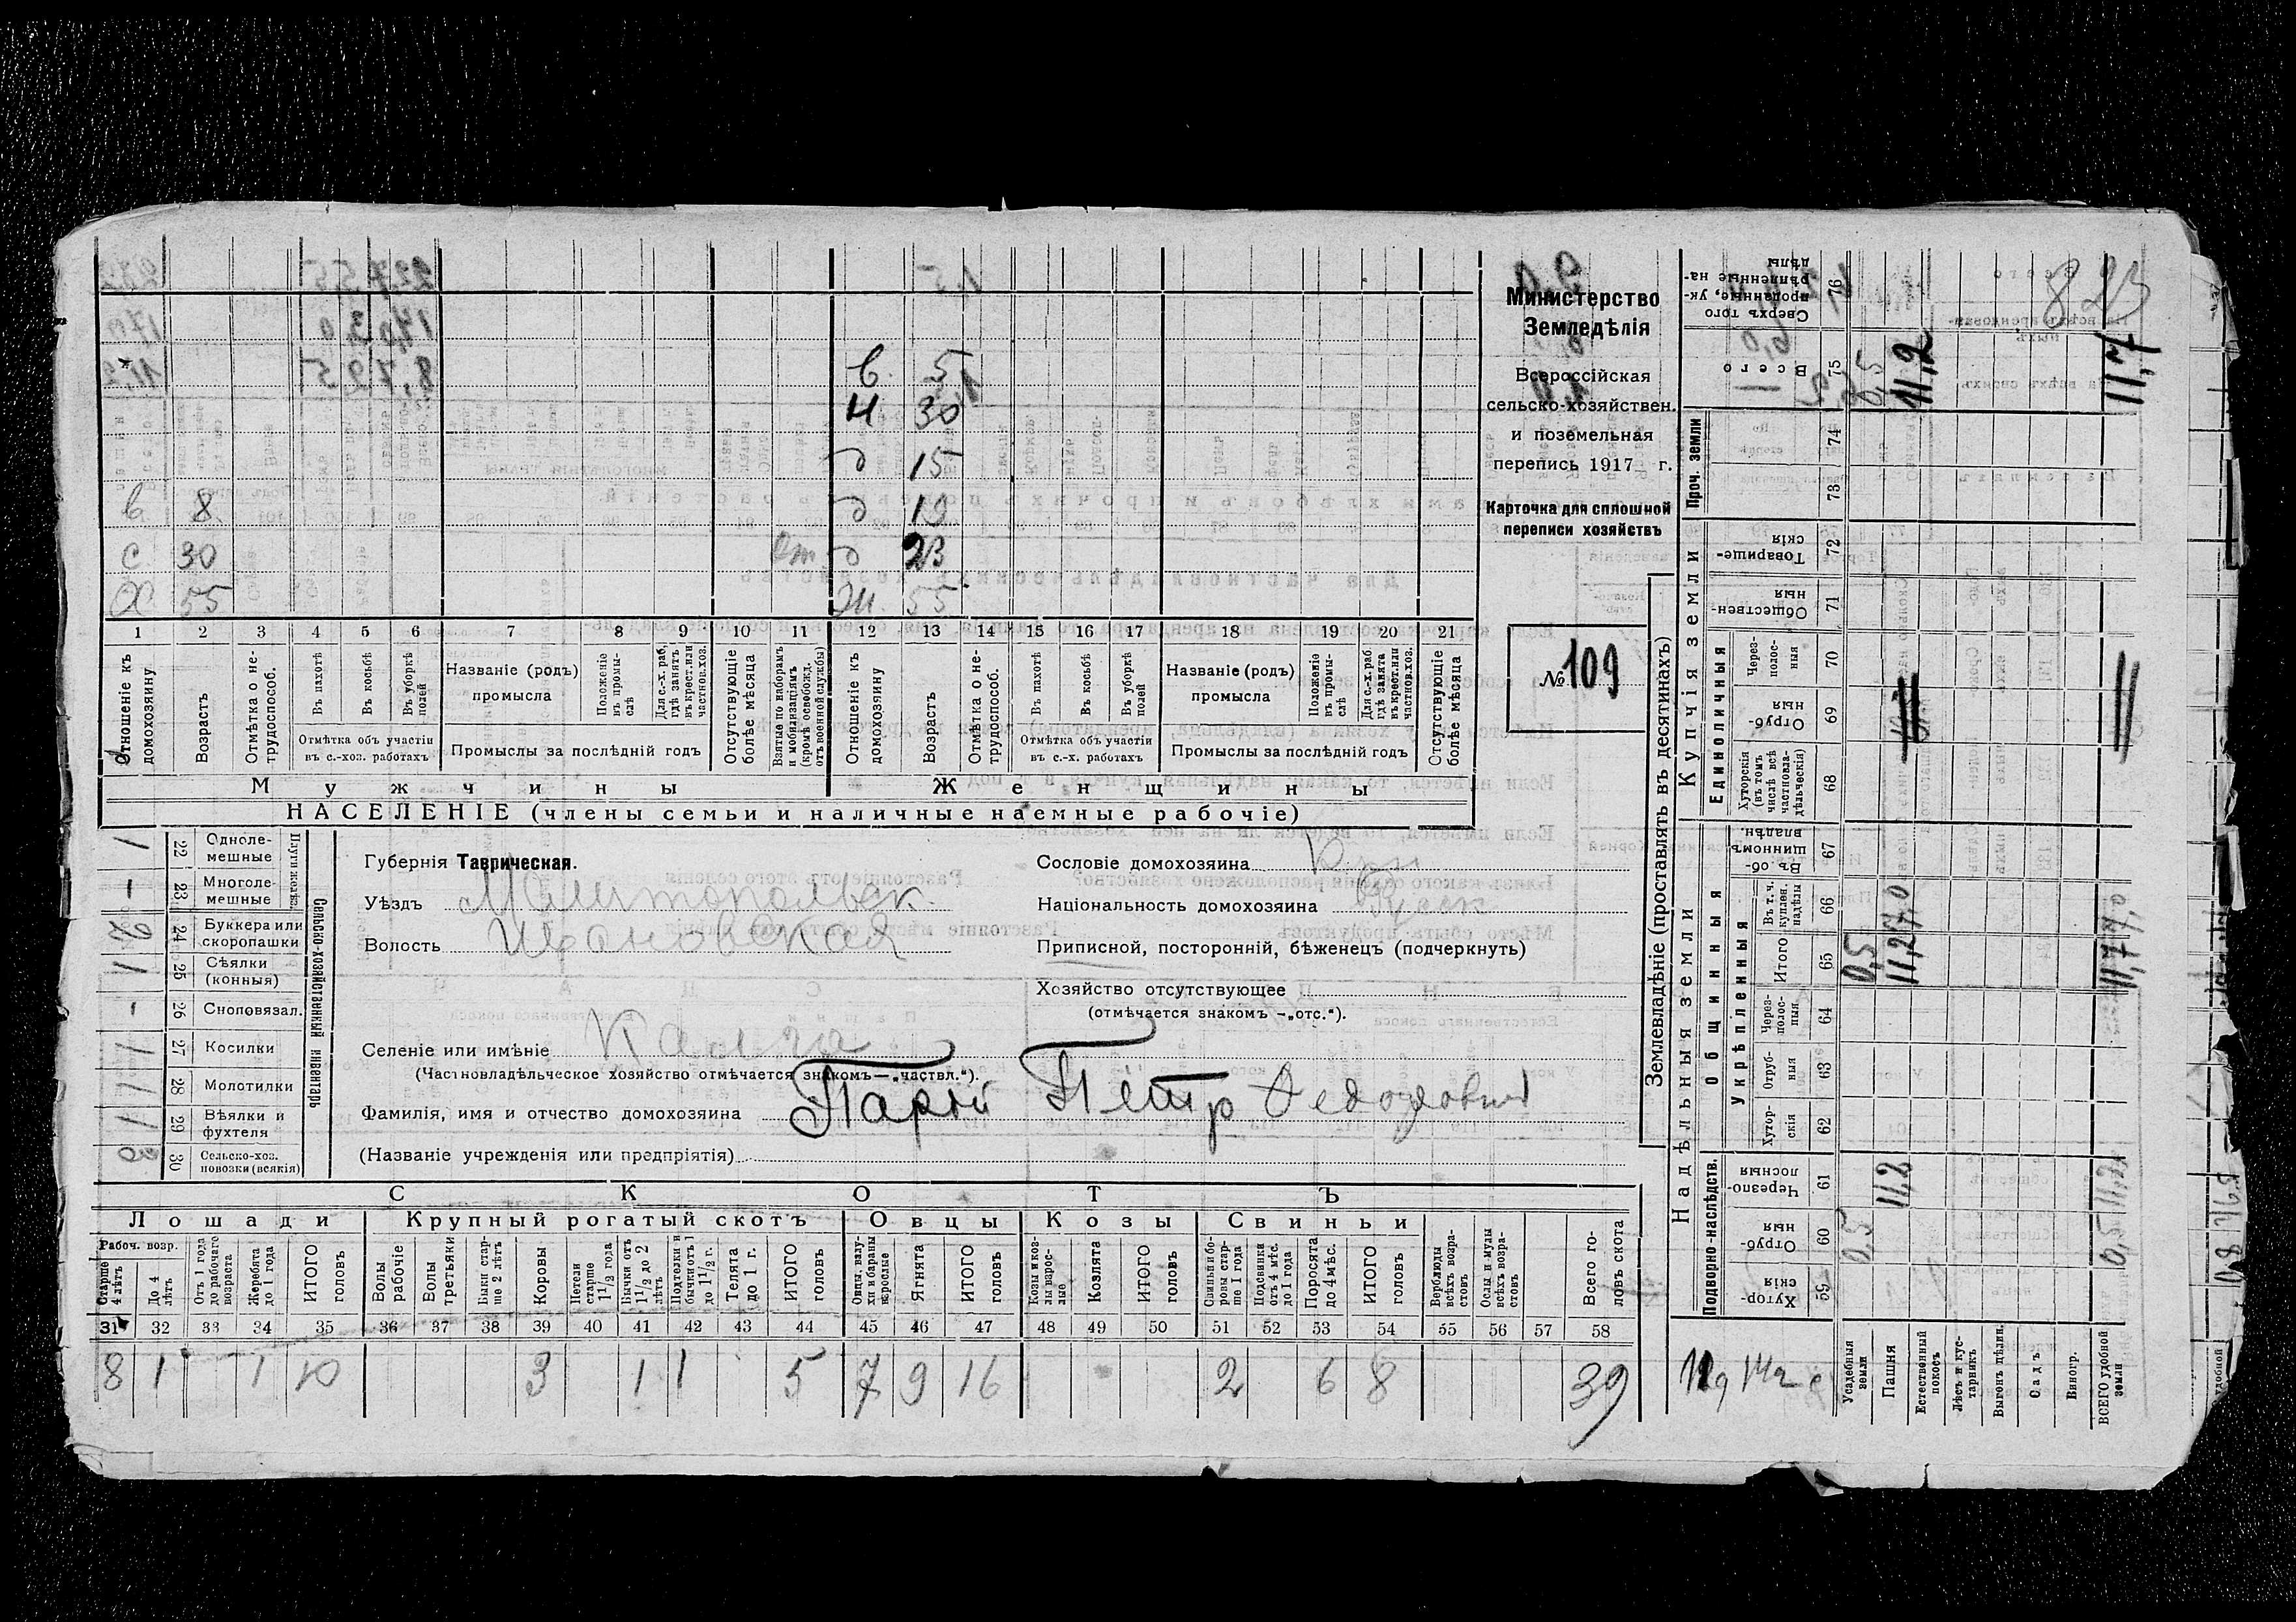 в. 5
н 30
д 15
в 8 д 19
с 30 д 23
Х 55 Ж. 55
1 2 3 4 5 6 7 8 9 10 11 12 13 14 15 16 17 18 19 20 21
Отношеніе къ домохозяину
Возрастъ
Отмѣтка о не-трудоспособ.
Въ пахотѣ
Въ косьбѣ
Въ уборкѣ полей
Отмѣтка объ участіи въ с.-хоз. работахъ
Названіе (родъ) промысла
Положеніе въ промы-слѣ
Для с.-х. раб. гдѣ занятъ въ крест. или частнов. хоз.
Промыслы за послѣдній годъ
Отсутствующіе болѣе мѣсяца
Взятые по наборамъ и мобилизаціямъ (кромѣ освобожд. отъ военной службы)
Отношеніе къ домохозяину
Возрастъ
Отмѣтка о не-трудоспособ.
Въ пахотѣ
Въ косьбѣ
Въ уборкѣ полей
Отмѣтка объ участіи въ с.-х. работахъ
Названіе (родъ) промысла
Положеніе въ промы-слѣ
Для с.-х. раб. гдѣ занята въ крест. или частнов. хоз.
Промыслы за послѣдній годъ
Отсутствующіе болѣе мѣсяца
Мужчины
Женщины
НАСЕЛЕНІЕ (члены семьи и наличные наемные рабочіе)
Министерство
Земледѣлія
Всероссійская
сельско-хозяйствен.
и поземельная
перепись 1917 г.
Карточка для сплошной
переписи хозяйствъ
№ 109
1 22 Одноле-мешные
- 23 Многоле-мешные
Плуги желѣз.
2 24 Буккера или скоропашки
1 25 Сѣялки (конныя)
- 26 Сноповязал.
1 27 Косилки
1 28 Молотилки
1 29 Вѣялки и фухтеля
3 30 Сельско-хоз. повозки (всякія)
Сельско-хозяйственный инвентарь
Губернія Таврическая.
Уѣздъ Мелитопольск.
Волость Ивановская
Сословіе домохозяина Кр
Національность домохозяина Русск
Приписной, посторонній, бѣженецъ (подчеркнуть)
Хозяйство отсутствующее
(отмѣчается знакомъ –„отс.“).
Селеніе или имѣніе
(Частновладѣльческое хозяйство отмѣчается знакомъ—„частвл.“).
Фамилія, имя и отчество домохозяина Парій Петр Федорович
(Названіе учрежденія или предпріятія)
СКОТЪ
Лошади Крупный рогатый скотъ Овцы Козы Свиньи
Рабоч. возр.
Старше 4 лѣтъ
До 4 лѣтъ
Отъ 1 года до рабочаго возраста
Жеребята до 1 года
ИТОГО головъ
Волы рабочіе
Волы третьяки
Быки стар-ше 2 лѣтъ
Коровы
Нетели старше 1 1/2 года
Бычки отъ 1 1/2 до 2 лѣтъ
Подтелки и бычки отъ 1 до 1 1/2 г.
Телята до 1 г.
ИТОГО головъ
Овцы, валу-хи и бараны взрослые
Ягнята
ИТОГО головъ
Козы и коз-лы взрос-лые
Козлята
ИТОГО головъ
Свиньи и бо-ровы стар-ше 1 года
Подсвинки отъ 4 мѣс. до 1 года
Поросята до 4 мѣс.
ИТОГО головъ
Верблюды всѣхъ возра-стовъ
Ослы и мулы всѣхъ возра-стовъ
Всего го-ловъ скота
31 32 33 34 35 36 37 38 39 40 41 42 43 44 45 46 47 48 49 50 51 52 53 54 55 56 57 58
8 1 1 10 3 1 1 5 7 9 16 2 6 8 39
Землевладѣніе (проставлять въ десятинахъ)
Надѣльныя земли
Купчія земли
Проч. земли
Подворно-наслѣдств.
Общинныя
Укрѣпленныя
Единоличныя
Сверхъ того проданные, ук-рѣпленные на-дѣлы 76
Всего 75
74
73
Товарище-скія 72
Обществен-ныя 71
Через-полос-ныя 70
Отруб-ныя 69
Хуторскія (въ томъ числѣ всѣ частновла-дѣльческія) 68
Въ об-щинномъ владѣн. 67
Въ т. ч. куплен. надѣлы 66
Итого 65
Через-полос-ныя 64
Отруб-ныя 63
Хутор-скія 62
Черезпо-лосныя 61
Отруб-ныя 60
Хутор-скія 59
823
0,5 11,2 11,7
7,0
0,5 11,2 11,7
11,2
0,5
Усадебныя земли
Пашня
Естественный покосъ
Лѣсъ и кус-тарникъ
Выгонъ цѣлин.
Садъ
Виногр.
ВСЕГО удобной земли